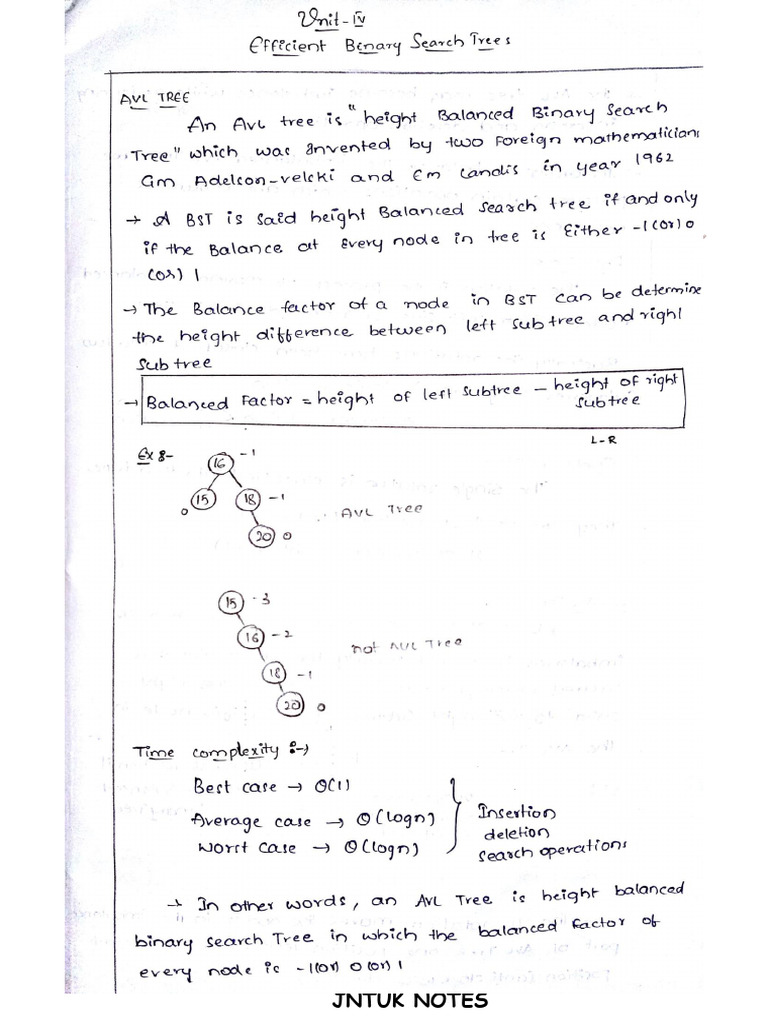 Unit-IV
Efficient Binary Search Trees
AVL TREE
An AVL tree is "height Balanced Binary Search
Tree" which was invented by two Foreign mathematicians
Gm Adelson-velski and Em Landis in year 1962
→ A BST is said height Balanced Search tree if and only
if the Balance at Every node in tree is Either -1(or) 0
(or) 1
→ The Balance factor of a node in BST can be determine
the height difference between left subtree and right
subtree
→ Balanced Factor = height of left subtree - height of right
subtree
L-R
Ex :-
16 -1
15 18 -1
0
20 0
AVL Tree
15 -3
16 -2
18 -1
20 0
not AVL Tree
Time complexity :→
Best case → O(1)
Average case → O(logn)
Worst case → O(logn)
Insertion
deletion
search operations
→ In other words, an AVL Tree is height balanced
binary search Tree in which the balanced factor of
every node is -1(or) 0(or) 1
JNTUK NOTES